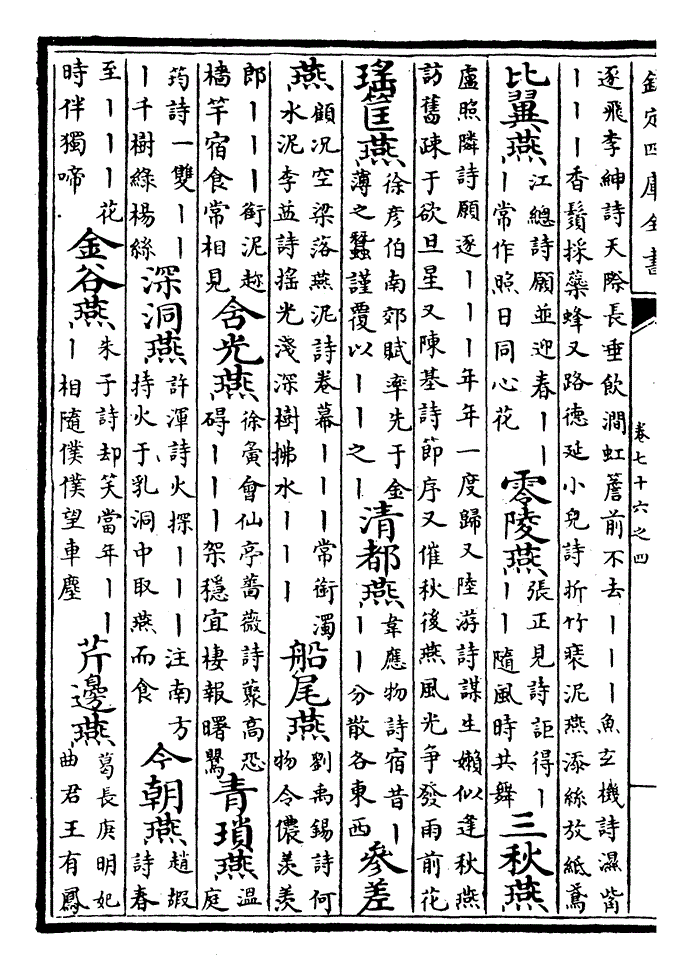 欽定四庫全書
卷七十六之四
逐飛李紳詩天畍長垂飲澗虹簷前不去丨丨丨魚玄機詩濕觜
丨丨丨香鬚採蘂蜂又路德延小兒詩折竹褭泥燕添絲放紙鳶
比翼燕
江總詩願並迎春丨丨
丨常作照日同心花
零陵燕
張正見詩詎得丨
丨丨隨風時共舞
三秋燕
盧照隣詩願逐丨丨丨年年一度歸又陸游詩謀生嬾似逢秋燕
訪舊疎于欲旦星又陳基詩節序又催秋後燕風光争發雨前花
瑤筐燕
徐彦伯南郊賦率先于金
薄之蠶謹覆以丨丨之丨
清都燕
韋應物詩宿昔丨
丨丨分散各東西
參差
燕
顧况空梁落燕泥詩卷幕丨丨丨常銜濁
水泥李益詩摇光淺深樹拂水丨丨丨
船尾燕
劉禹錫詩何
物令儂羨羨
郎丨丨丨銜泥趂
檣竿宿食常相見
含光燕
徐夤會仙亭薔薇詩藂高恐
碍丨丨丨架穩宜棲報曙鸎
青瑣燕
温
庭
筠詩一雙丨丨
丨千樹綠楊絲
深洞燕
許渾詩火探丨丨丨注南方
持火于乳洞中取燕而食
今朝燕
趙嘏
詩春
至丨丨丨花
時伴獨啼
金谷燕
朱子詩却笑當年丨丨
丨相隨僕僕望車塵
芹邊燕
葛長庚明妃
曲君王有鳳